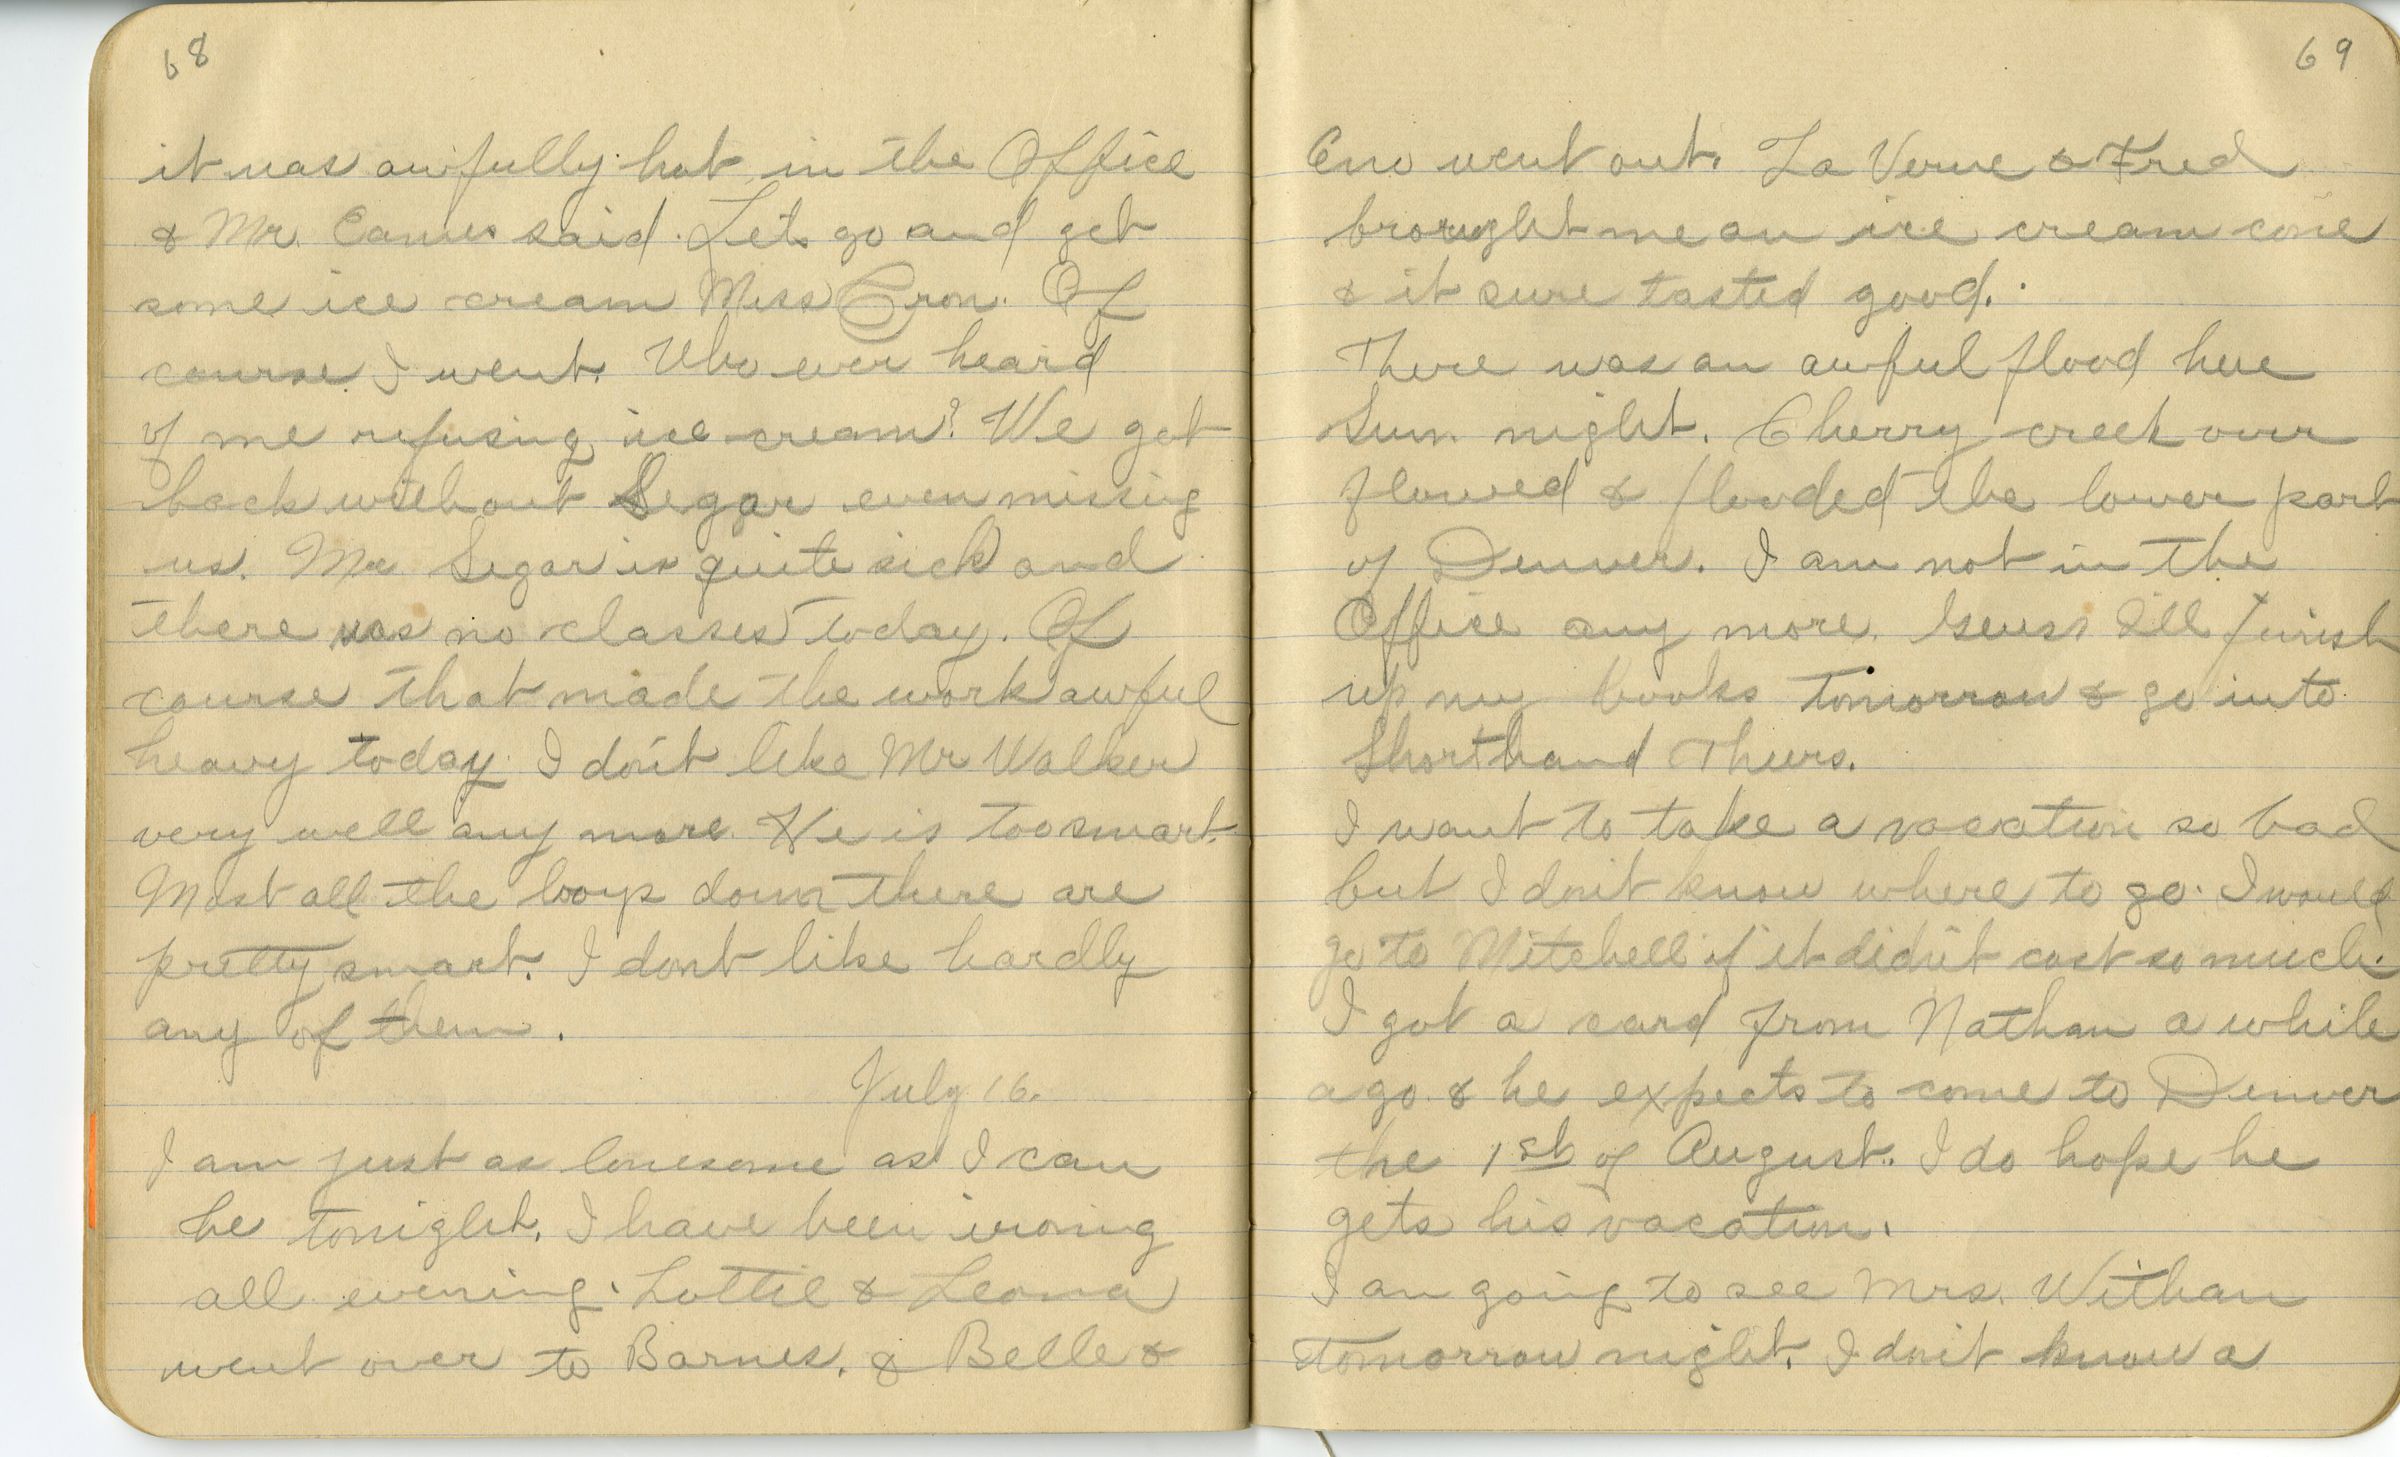 68
it was awfully hot in the Office
& Mr. Eames said. Let's go and get
some ice cream Miss Cron. Of
course I went. Who ever heard
of me refusing ice cream? We got
back without Segar even missing
us. Mr. Segar is quite sick and
there was no classes today. Of
course that made the work awful
heavy today. I don't like Mr Walker
very well any more. He is too smart.
Most all the boys down there are
pretty smart. I don't like hardly
any of them.
July 16.
I am just as lonesome as I can
be tonight. I have been ironing
all evening. Lottie & Leona
went over to Barnes. & Belle &
69
Eno went out. La Verne & Fred
brought me an ice cream cone
& it sure tasted good.
There was an awful flood here
Sun. night. Cherry creek over
flowed & flooded the lower part
of Denver. I am not in the
Office any more. Guess I'll finish
up my books tomorrow & go into
Shorthand Thurs.
I want to take a vacation so bad
but I don't know where to go. I would
go to Mitchell if it didn't cost so much.
I got a card from Nathan a while
ago & he expects to come to Denver
the 1st of August. I do hope he
gets his vacation.
I an going to see Mrs. Withan
tomorrow night. I don't know a